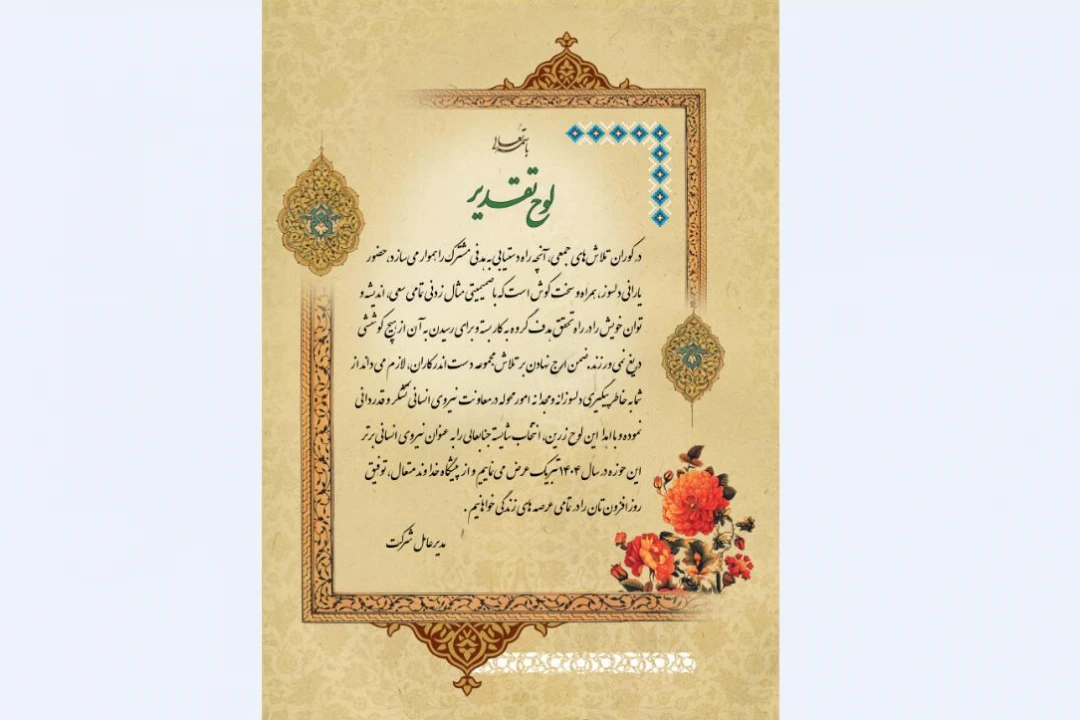 باسمه تعالی
لوح تقدیر
در کوران تلاش های جمعی، آنچه راه دستیابی به هدفی مشترک را هموار می سازد، حضور
یارانی دلسوز، همراه و سخت کوش است که با صمیمیتی مثال زدنی تمامی سعی، اندیشه و
توان خویش را در راه تحقق هدف گروه به کار بسته و برای رسیدن به آن از هیچ کوششی
دریغ نمی ورزند. ضمن ارج نهادن بر تلاش مجموعه دست اندرکاران، لازم می داند از
شما به خاطر پیگیری دلسوزانه و مجدانه امور محوله در معاونت نیروی انسانی تشکر و قدردانی
نموده و با اهدا این لوح زرین، انتخاب شایسته جنابعالی را به عنوان نیروی انسانی برتر
این حوزه در سال ۱۴۰۴ تبریک عرض می نماییم و از پیشگاه خداوند متعال، توفیق
روزافزون تان را در تمامی عرصه های زندگی خواهانیم.
مدیرعامل شرکت